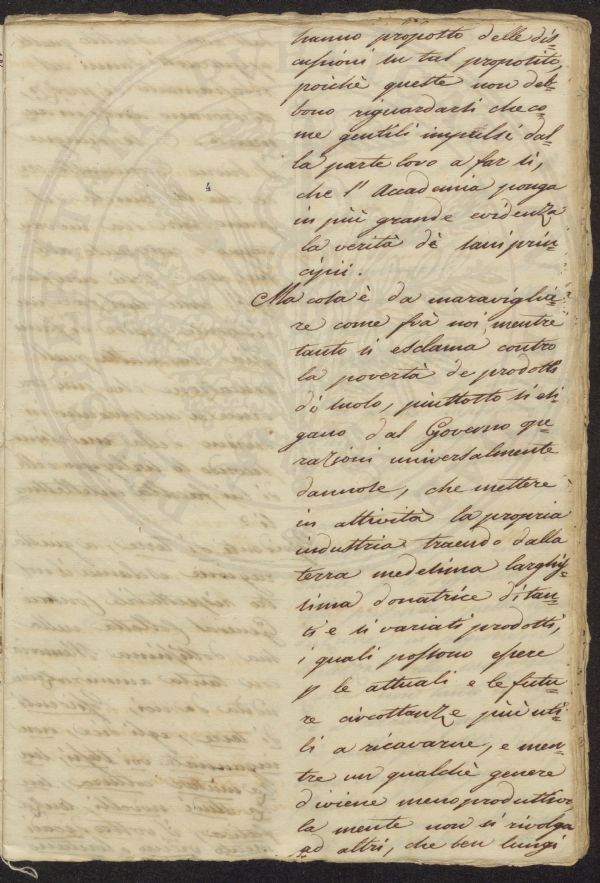 hanno proposto delle dis=
cussioni su tal proposito,
poichè queste non deb=
bono riguardarsi che co=
me gentili impulsi dal=
la parte loro a far si,
che l' Accademia ponga
in più grande evidenza
la verità dè sani prin=
cipii.
Ma cosa è da maraviglia=
re come frà noi mentre
tanto si esclama contro
la povertà de prodotti
di suolo, piuttosto si esi=
gano dal Governo ope=
razioni universalmente
dannose, che mettere
in attività la propria
industria traendo dalla
terra medesima larghis=
sima donatrice di tan=
ti e si variati prodotti,
i quali possono essere
p le attuali e le futu=
re circostanze più uti=
li a ricavarne, e men=
tre un qualchè genere
diviene meno produttivo,
la mente non si rivolga
ad altri, che ben lungi